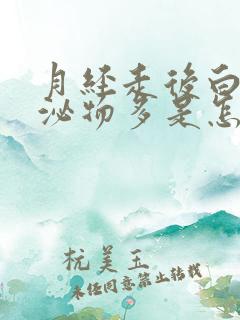 月经来后白
泌物多是怎
杭美玉
未经同意禁止转载